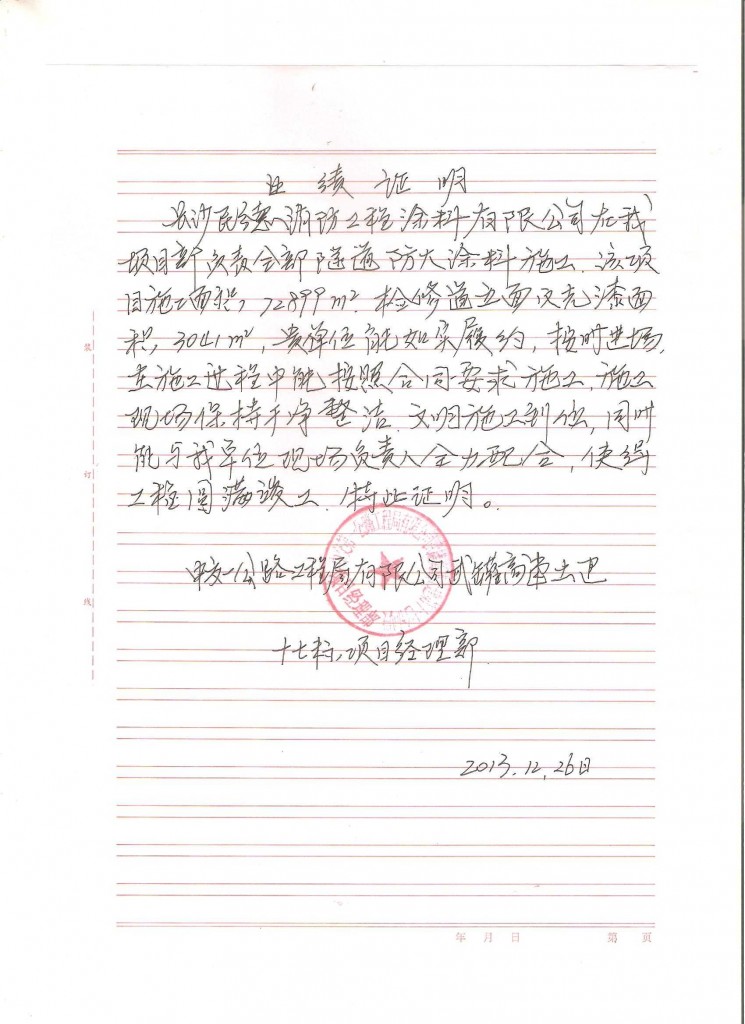 业绩证明
长沙民德消防工程涂料有限公司在我
项目部负责全部隧道防火涂料施工.该项
目施工面积,72899m².检修道立面反光漆面
积,3041m²,贵单位能如实履约,按时进场,
在施工过程中能按照合同要求施工,施工
现场保持干净整洁.文明施工到位,同时
能与我单位现场负责人全力配合,使得
工程圆满竣工.特此证明。
中交一公路工程局有限公司武罐高速土建
十七标项目经理部
2013.12.26日
装
订
线
年 月 日 第 页